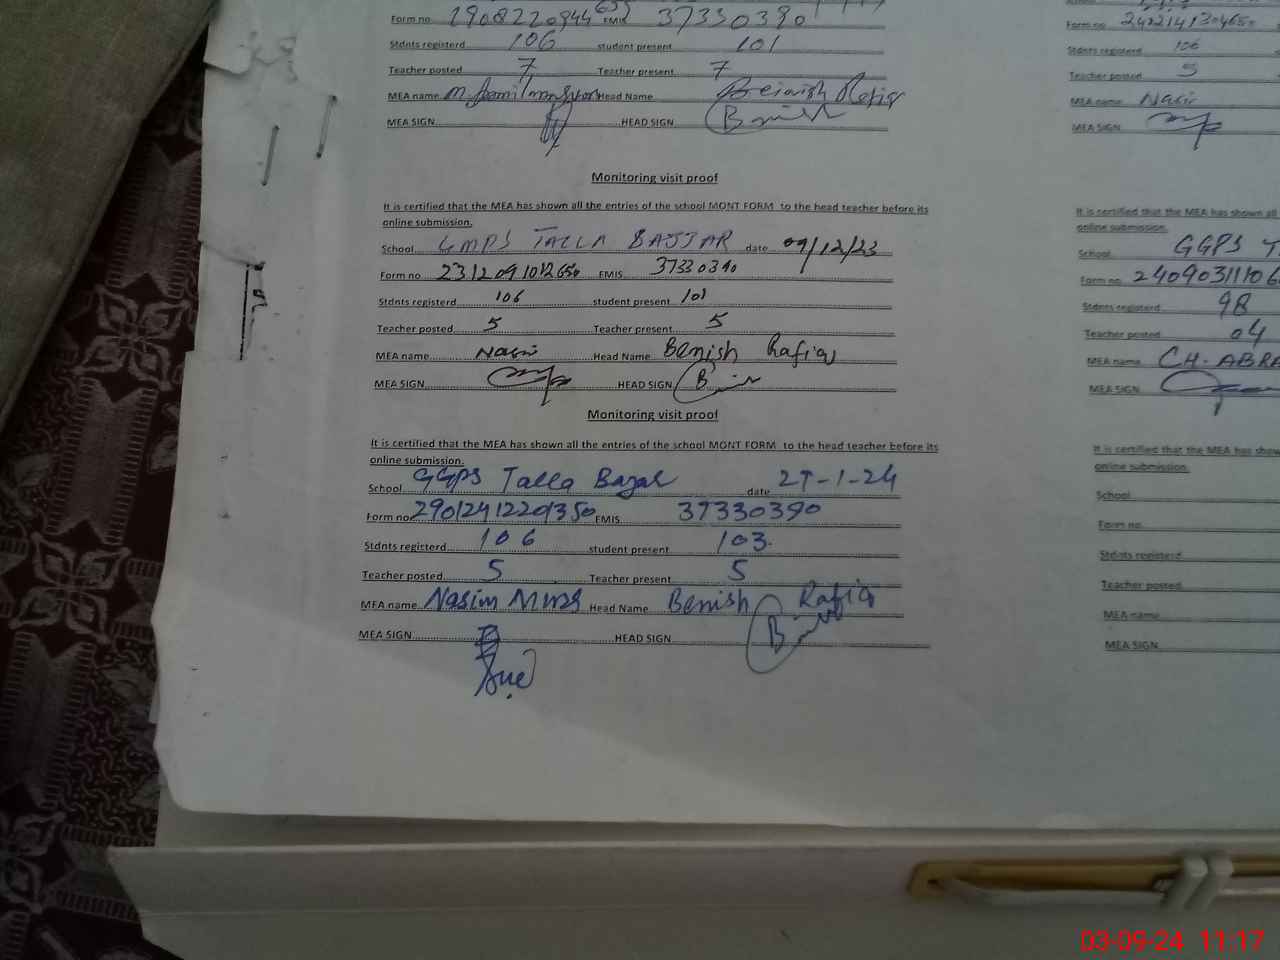 Form no 3733039
Stdnts registerd 106 student present 101
Teacher posted 7 Teacher present 7
MEA name Head Name Beinish Rafiq
MEA SIGN HEAD SIGN
Monitoring visit proof
It is certified that the MEA has shown all the entries of the school MONT FORM to the head teacher before its
online submission.
School GMPS TALLA BAJJAR date 09/12/23
Form no EMIS 37330390
Stdnts registerd 106 student present 101
Teacher posted 5 Teacher present 5
MEA name Nasir Head Name Benish Rafiq
MEA SIGN HEAD SIGN
Monitoring visit proof
It is certified that the MEA has shown all the entries of the school MONT FORM to the head teacher before its
online submission.
School GGPS Talla Bazar date 27-1-24
Form no 29012412201350 EMIS 37330390
Stdnts registerd 106 student present 103
Teacher posted 5 Teacher present 5
MEA name Nasim Head Name Benish Rafiq
MEA SIGN HEAD SIGN
Form no
Stdnts registerd 106
Teacher posted 5
MEA name Nasir
MEA SIGN
It is certified that the MEA has shown all
online submission.
School GGPS
Form no
Stdnts registerd 98
Teacher posted 04
MEA name CH-ABRA
MEA SIGN
It is certified that the MEA has show
online submission.
School
Form no
Stdnts registerd
Teacher posted
MEA name
MEA SIGN
03-09-24 11:17